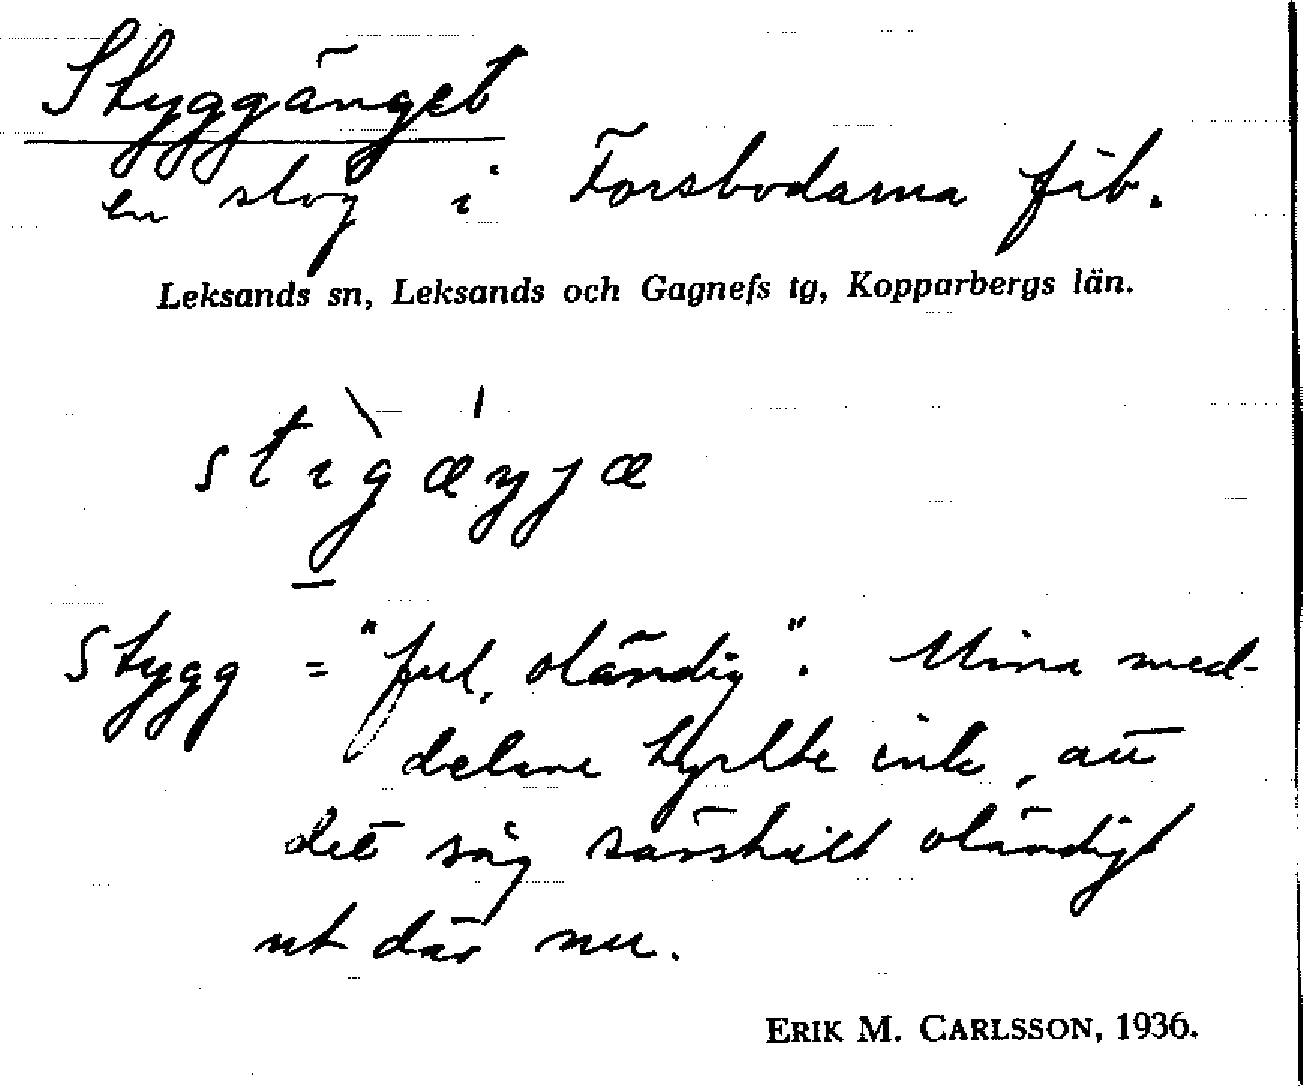 Styggänget
en slog i Forsbodarna fäb.
Leksands sn, Leksands och Gagnefs tg, Kopparbergs län.
stìgǽŋjæ
Stygg = "ful, oländig". Mina med-
delare tyckte inte, att
det såg särskilt oländigt
ut där nu.
ERIK M. CARLSSON, 1936.